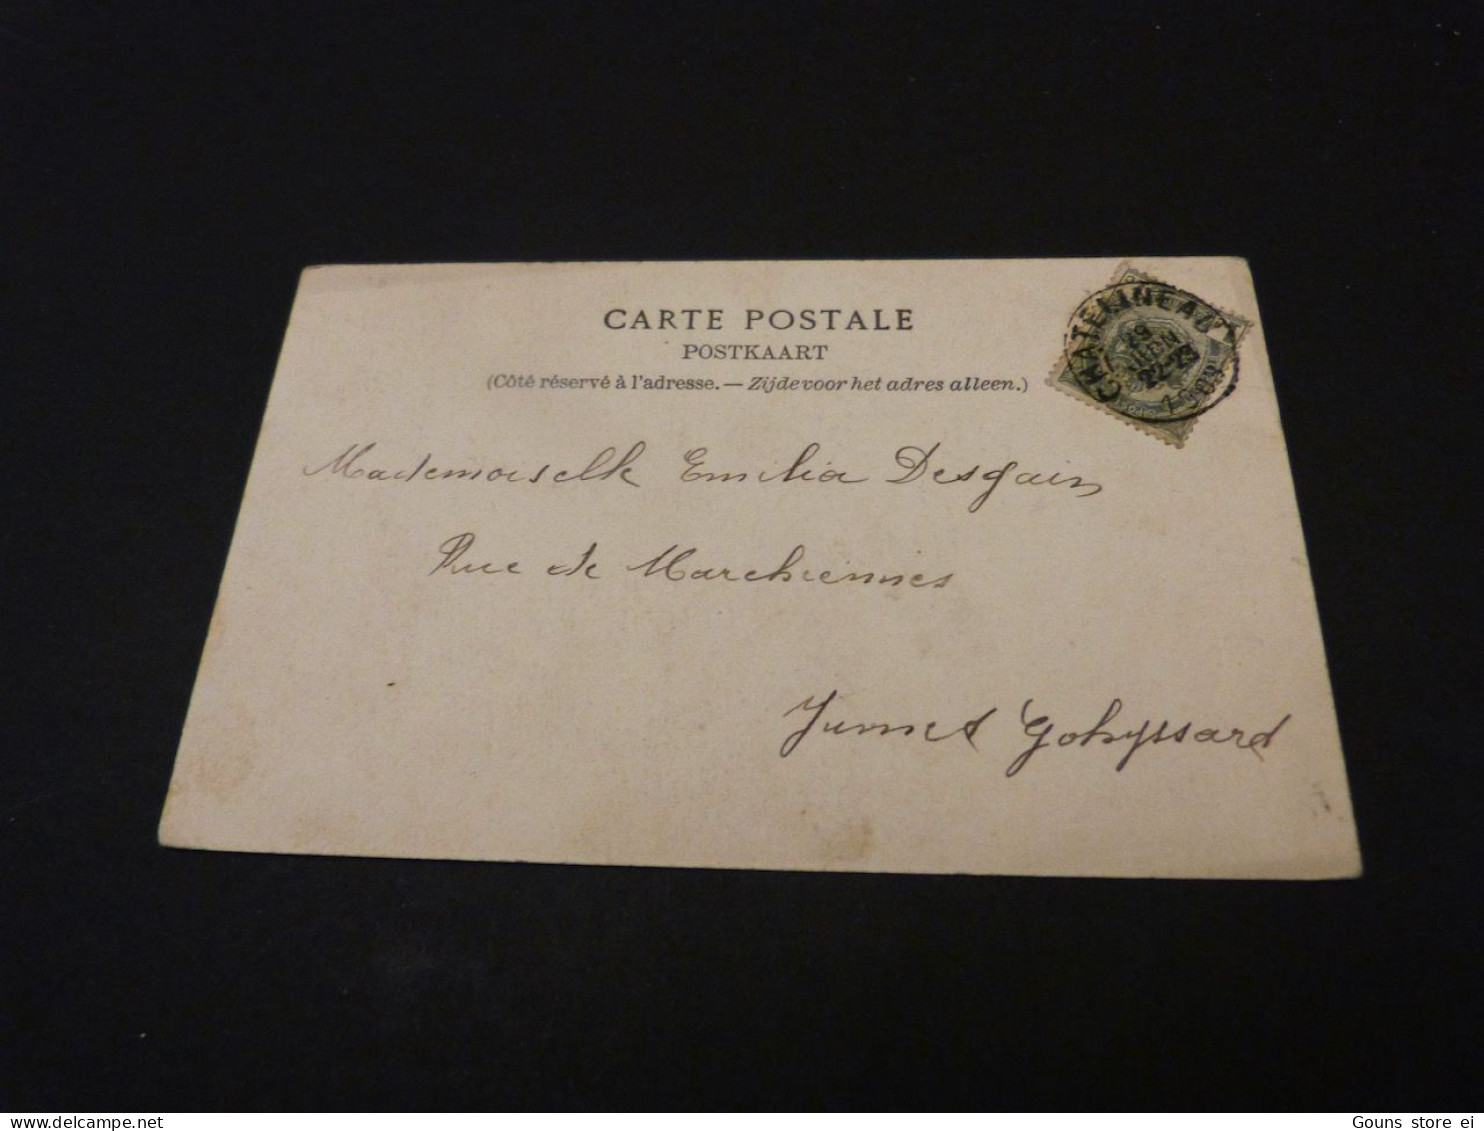 CARTE POSTALE
POSTKAART
(Côté réservé à l'adresse. — Zijde voor het adres alleen.)
CHATELINEAU
22-23
Mademoiselle Emilia Desgain
Rue de Marchiennes
Jumet Gohyssard
Gouns store ei